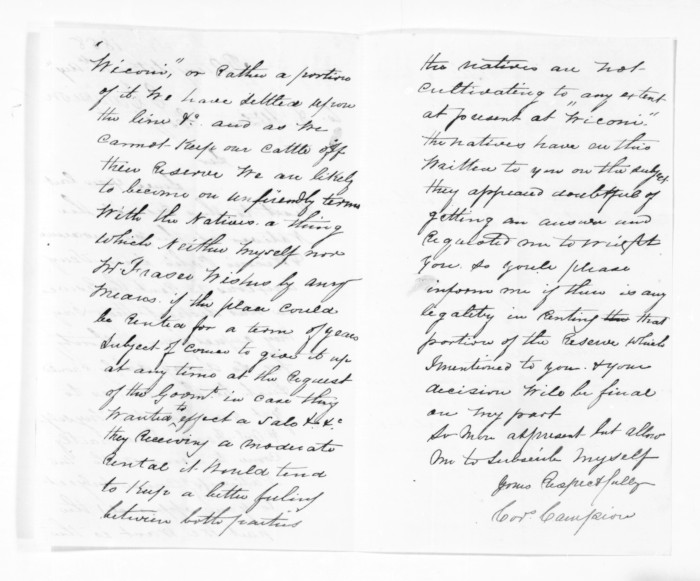 Wiconi," or Rather a portion
of it. We have settled upon
the line &c. and as We
Cannot Keep our Cattle off
their Reserve We are likely
to become on unfriendly terms
With the Natives. a thing
which Neither Myself nor
Mr Fraser Wishes by any
Means. if the place Could
be Rented for a term of years
Subject of Course to give it up
at any time at the Request
of the Govmt. in Case they
Wanted to effect a Sale &. &c
they Receiving a Moderate
Rental it Would tend
to Keep a better feeling
between both parties
the natives are not
Cultivating to any extent
at present at "Wiconi."
the Natives have on this
Written to you on the subject
they appeared doubtful of
getting an answer and
Requested me to wright
you. So you'le please
inform me if there is any
legality in Renting the that
portion of the Reserve which
I mentioned to you. & your
decision Will be final
on My part
So More at present but allow
Me to Subscribe Myself
Yours Respectfully
Cors. Campion